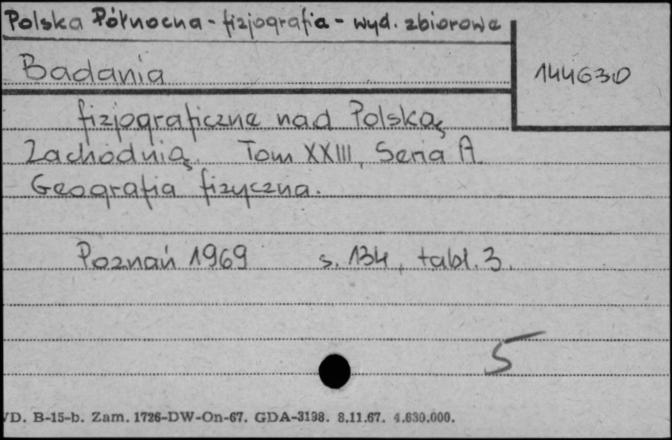 Polska Północna - fizjografia - wyd. zbiorowe
Badania
144630
fizjograficzne nad Polską
Zachodnią. Tom XXIII, Seria A.
Geografia fizyczna.
Poznań 1969 s. 134, tabl. 3.
5
VD. B-15-b. Zam. 1726-DW-On-67. GDA-3198. 8.11.67. 4.630.000.